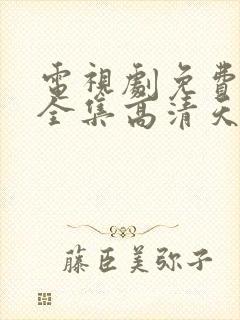 電視劇免費
全集高清天
藤臣美弥子